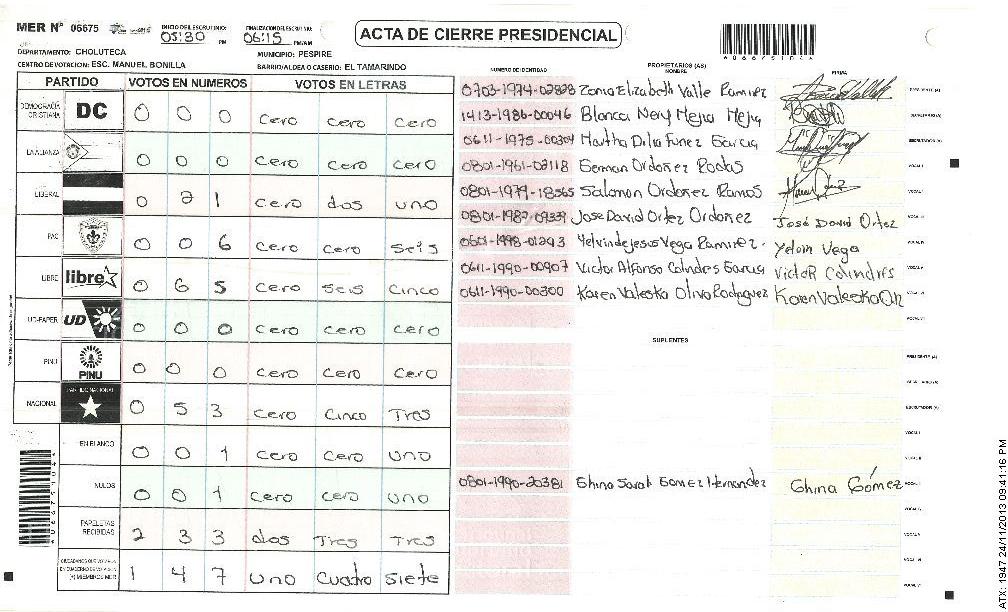 MER Nº 06675
INICIO DEL ESCRUTINIO 05:30 PM
FINALIZACION DEL ESCRUTINIO: 06:15 PM/AM
ACTA DE CIERRE PRESIDENCIAL
DEPARTAMENTO: CHOLUTECA
MUNICIPIO: PESPIRE
CENTRO DE VOTACION: ESC. MANUEL BONILLA
BARRIO/ALDEA O CASERIO: EL TAMARINDO
PARTIDO VOTOS EN NUMEROS VOTOS EN LETRAS
DEMOCRACIA CRISTIANA DC 0 0 0 cero cero cero
LA ALIANZA 0 0 0 cero cero cero
LIBERAL 0 2 1 cero dos uno
PAC 0 0 6 cero cero seis
LIBRE libre 0 6 5 cero seis cinco
UD-FAPER UD 0 0 0 cero cero cero
PINU PINU 0 0 0 cero cero cero
NACIONAL PARTIDO NACIONAL 0 5 3 cero cinco Tres
EN BLANCO 0 0 1 cero cero uno
NULOS 0 0 1 cero cero uno
PAPELETAS RECIBIDAS 2 3 3 dos Tres Tres
1 4 7 uno cuatro siete
NUMERO DE IDENTIDAD
PROPIETARIOS (AS)
NOMBRE
FIRMA
0703-1974-02828 Zonia Elizabeth Valle Ramirez
1413-1986-00046 Blanca Nery Mejia Mejia
0611-1975-00304 Martha Dilia Funez Garcia
0801-1961-02118 German Ordoñez Rodas
0801-1979-18565 Salomon Ordoñez Ramos
0801-1987-09339 Jose David Ortez Ordoñez José David Ortez
0601-1998-01293 Yelvin de jesus Vega Ramirez. Yelvin Vega
0611-1990-00907 Victor Alfonso Colindres Garcia Victor Colindres
0611-1990-00300 Karen Valeska Oliva Rodriguez
SUPLENTES
0801-1990-20381 Ghina Sarai Gomez Hernandez Ghina Gómez
ATX: 1947 24/11/2013 09:41:16 PM